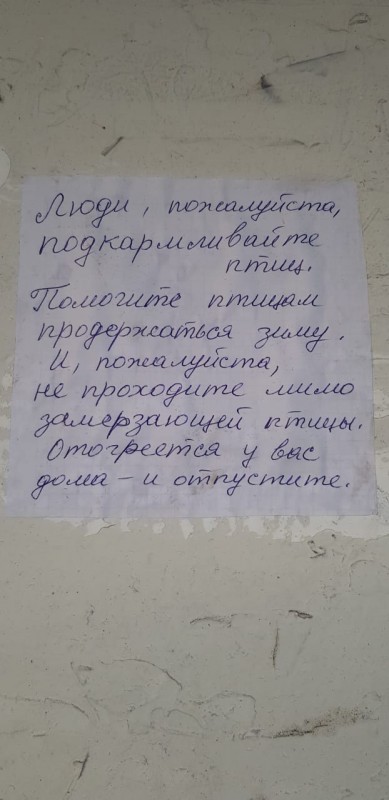 Люди, пожалуйста,
подкармливайте
птиц.
Помогите птицам
продержаться зиму.
И, пожалуйста,
не проходите мимо
замерзающей птицы.
Отогреется у вас
дома – и отпустите.